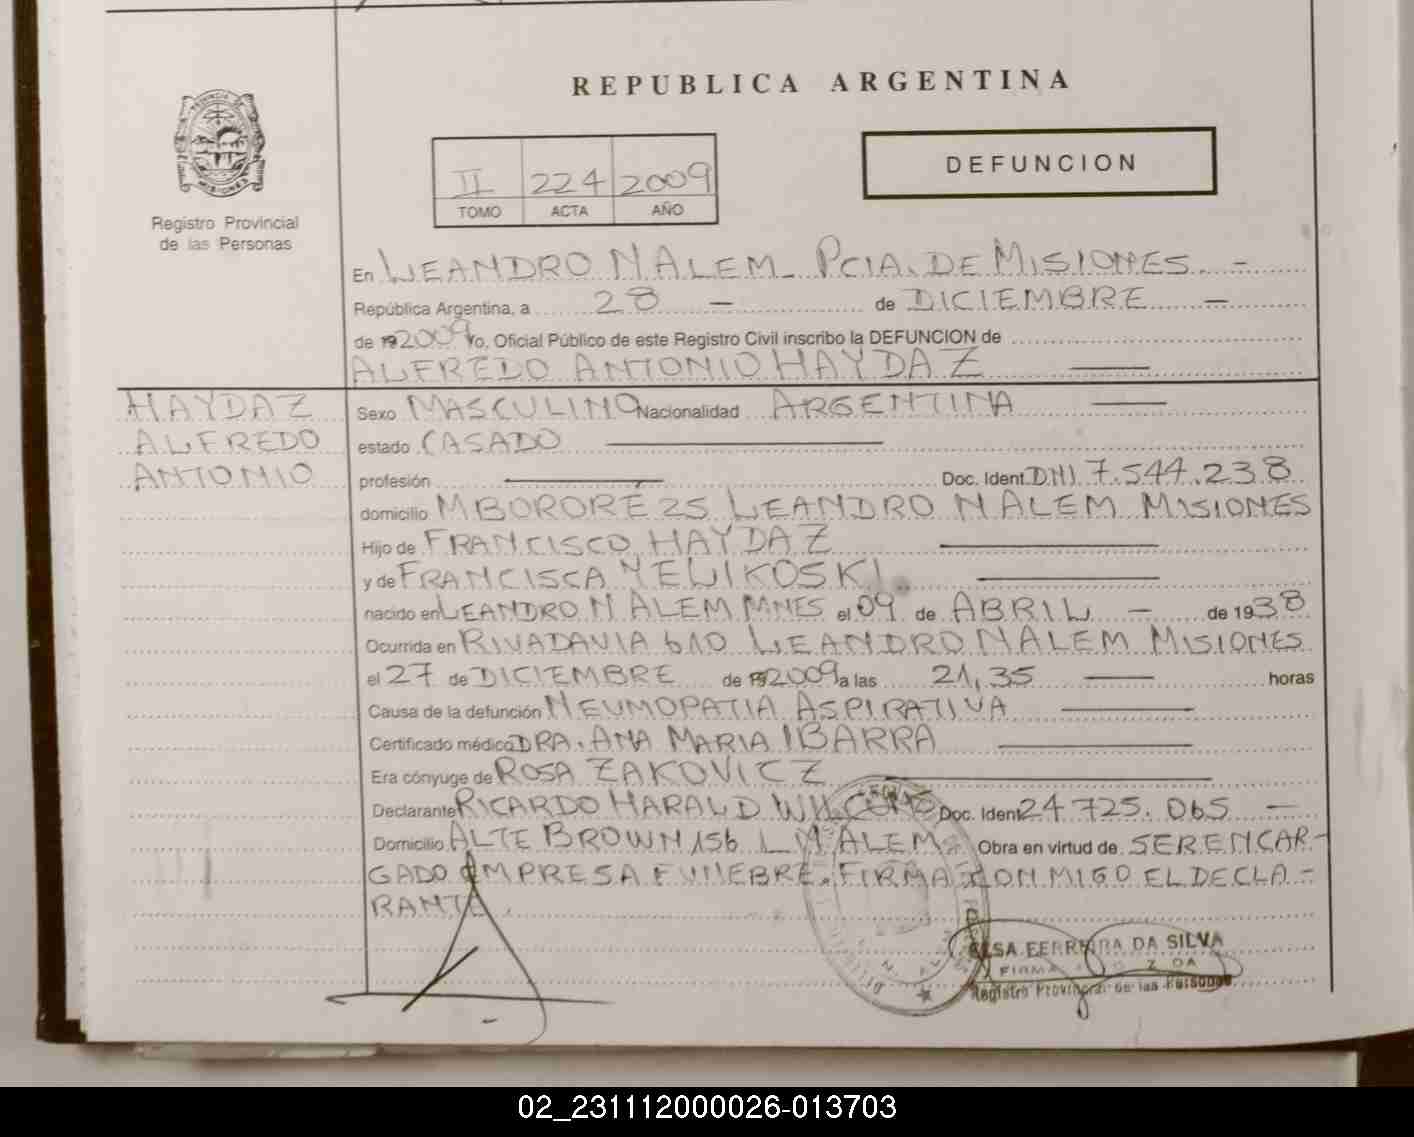 REPUBLICA ARGENTINA
PROVINCIA DE
MISIONES
Registro Provincial
de las Personas
II 224 2009
TOMO ACTA AÑO
DEFUNCION
En LEANDRO N ALEM - PCIA. DE MISIONES. -
República Argentina, a 28 - de DICIEMBRE -
de 192009 Yo, Oficial Público de este Registro Civil inscribo la DEFUNCION de
ALFREDO ANTONIO HAYDAZ
HAYDAZ
ALFREDO
ANTONIO
Sexo MASCULINO Nacionalidad ARGENTINA
estado CASADO
profesión Doc. Ident. DNI 7.544.238
domicilio MBORORÉ 25 LEANDRO N ALEM MISIONES
Hijo de FRANCISCO HAYDAZ
y de FRANCISCA YELIKOSKI
nacido en LEANDRO N ALEM MNES el 09 de ABRIL - de 1938
Ocurrida en RIVADAVIA 610 LEANDRO N ALEM MISIONES
el 27 de DICIEMBRE de 192009 a las 21,35 horas
Causa de la defunción NEUMOPATIA ASPIRATIVA
Certificado médico DRA. ANA MARIA IBARRA
Era cónyuge de ROSA ZAKOVICZ
Declarante RICARDO HARALD Doc. Ident 24.725.065 -
Domicilio ALTE BROWN 156 L N ALEM Obra en virtud de SER ENCAR-
GADO EMPRESA FUNEBRE. FIRMA CONMIGO EL DECLA-
RANTE.
ELSA FERREIRA DA SILVA
FIRMA
Registro Provincial de las Personas
02_231112000026-013703